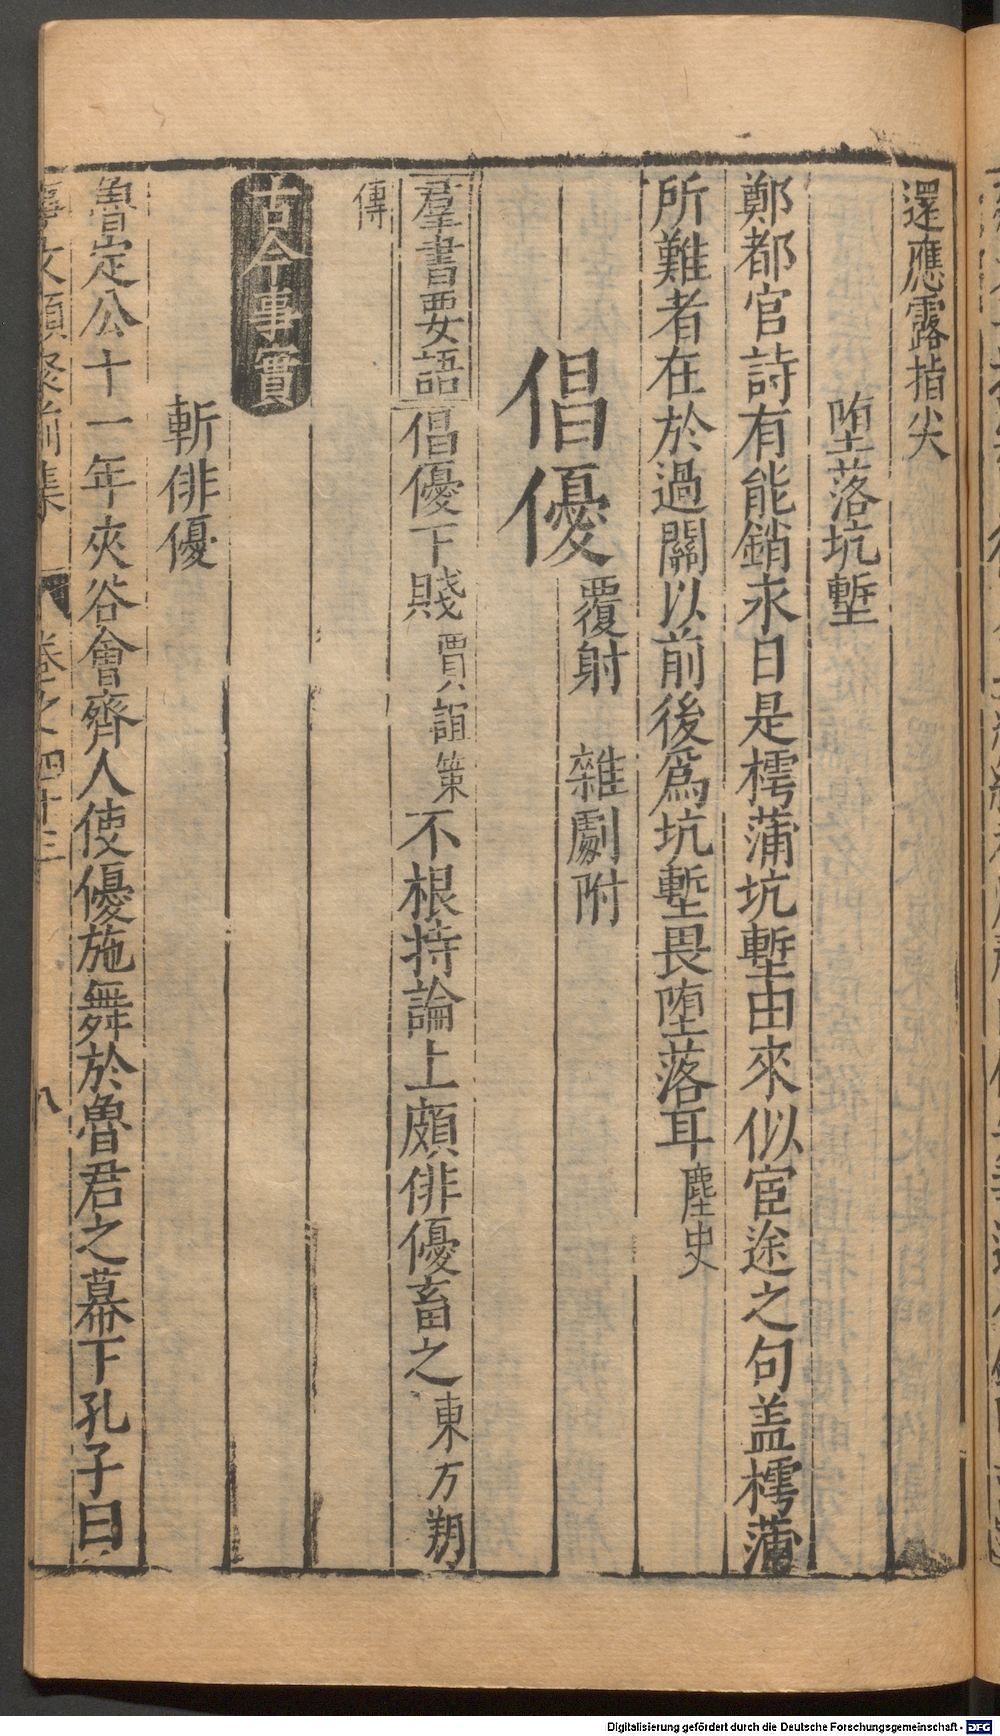 還應露指尖
墮落坑塹
鄭都官詩有能銷永日是樗蒲坑塹由來似宦途之句盖樗蒲
所難者在於過關以前後爲坑塹畏墮落耳塵史
倡優覆射 雜劇附
羣書要語倡優下賤賈誼策不根持論上頗俳優畜之東方朔
傳
古今事實
斬俳優
魯定公十一年夾谷會齊人使優施舞於魯君之幕下孔子曰
事文類聚前集 卷之四十三 八
Digitalisierung gefördert durch die Deutsche Forschungsgemeinschaft - DFG